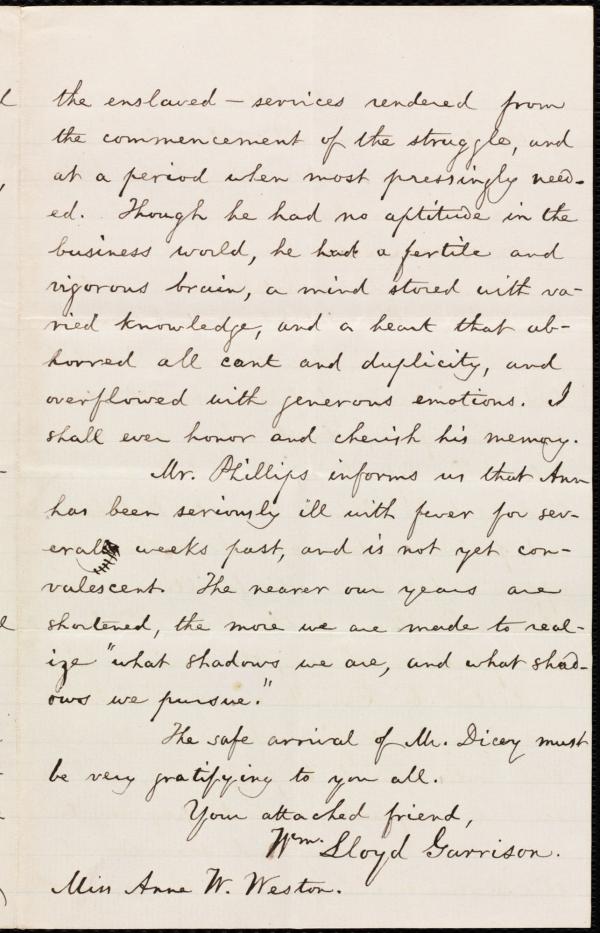 the enslaved — services rendered from
the commencement of the struggle, and
at a period when most pressingly need-
ed. Though he had no aptitude in the
business world, he had a fertile and
vigorous brain, a mind stored with va-
ried knowledge, and a heart that ab-
horred all cant and duplicity, and
overflowed with generous emotions. I
shall ever honor and cherish his memory.
Mr. Phillips informs us that Ann
has been seriously ill with fever for sev-
eral weeks past, and is not yet con-
valescent. The nearer our years are
shortened, the more we are made to real-
ize "what shadows we are, and what shad-
ows we pursue."
The safe arrival of Mr. Dicey must
be very gratifying to you all.
Your attached friend,
Wm. Lloyd Garrison.
Miss Anne W. Weston.